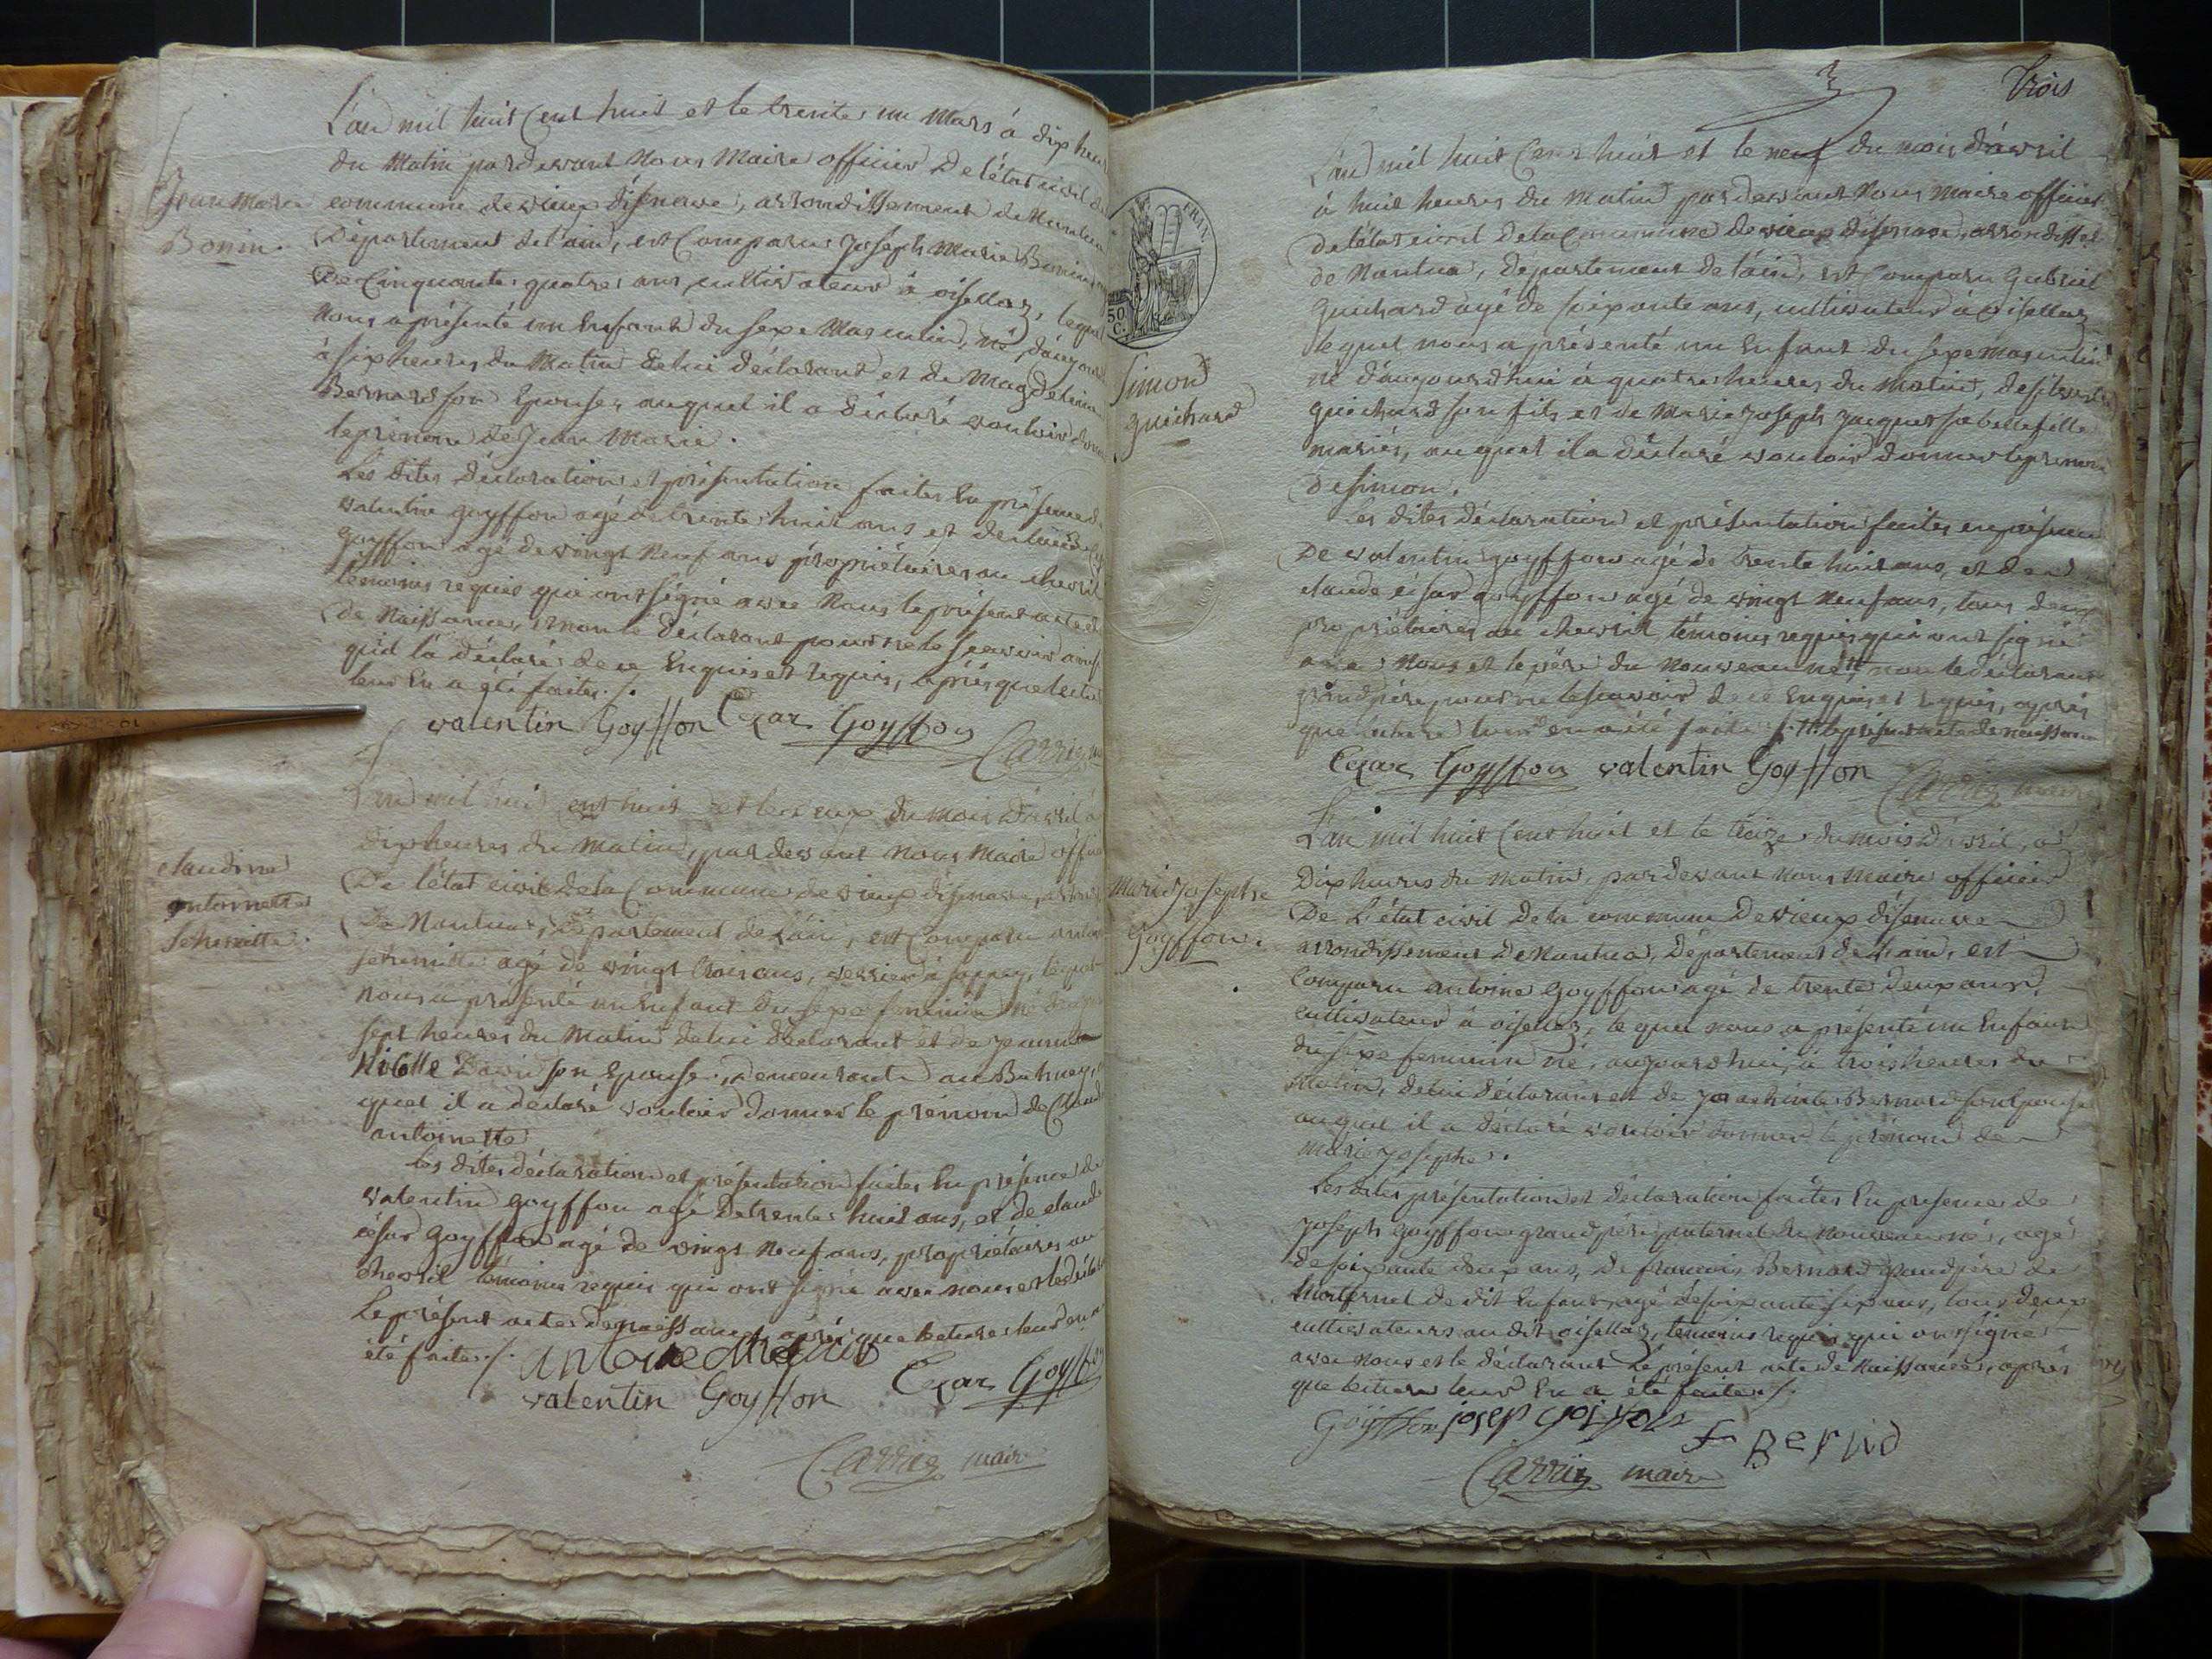 L'an mil huit cent huit et le trente un Mars à dix heures
du Matin pardevant Nous Maire officier De l'état civil de
commune de vieux d'isenave, arrondissement de Nantua
Département de l'ain, est Comparu Joseph Marie Bonin
De Cinquante quatre ans, cultivateur à oisellaz, lequel
Nous a présenté un Enfant du sexe Masculin, né d'aujourd
à six heures du Matin de lui déclarant et de Magdelaine
Bernard son Epouse, auquel il a déclaré vouloir donner
le prénom de Jean Marie.
Les dites déclaration et présentation faites En présence de
valentin goyffon agé de trente huit ans et de claude
goyffon agé de vingt Neuf ans propriétaires au chevril
témoins requis qui ont signé avec Nous le présent acte
de Naissance, non le déclarant pour ne le scavoir ainsi
qu'il l'a déclaré de ce Enquis et requis, après que lecture
leur En a été faite ./.
valentin Goyffon Cezar Goyffon
Carrier
Jean Marie
Bonin.
L'an mil huit cent huit et le deux du mois d'avril à
dix heures du Matin, pardevant Nous Maire officier
De l'état civil de la Commune de vieux d'isenave, arrond
De Nantua, Département de l'ain, est Comparu antoi
agé de vingt trois ans, verrier à lequel
Nous a présenté un Enfant du sexe feminin né
sept heures du Matin de lui déclarant et de Jeanne
Nicolle David son Epouse, demeurante au Burney,
quel il a déclaré vouloir donner le prénom de Claudi
antoinette
Les dites déclaration et présentation faites En présence de
valentin goyffon agé de trente huit ans, et de claude
césar goyffon agé de vingt Neuf ans, propriétaires au
chevril témoins requis qui ont signé avec nous et le déclar
Le présent acte de naissance, après que lecture leur en a
été faite ./.
antoine
valentin Goyffon Cezar Goyffon
Carrier maire
claudine
antoinette
3
Trois
L'an mil huit Cent huit et le neuf du mois d'avril
à huit heures du Matin pardevant Nous Maire officier
de l'état civil de la Commune de vieux d'isenave, arrondissel
de Nantua, département de l'ain, est Comparu Gabriel
guichard agé de soixante ans, cultivateur à oisellaz
lequel nous a présenté un Enfant du sexe masculin
né d'aujourd'hui à quatre heures du Matin, de
guichard son fils et de Marie Joseph Jacquet sa belle fille
mariés, auquel il a déclaré vouloir donner le prénom
de simon.
Les dites déclaration et présentation faites en présence
De valentin goyffon agé de trente huit ans, et de
claude césar goyffon agé de vingt Neuf ans, tous deux
propriétaires au chevril, témoins requis qui ont signé
avec Nous et le père du Nouveau né, non le déclarant
grand père pour ne le scavoir de ce Enquis et requis, après
que lecture leur en a été faite ./. le présent acte de naissance
Cezar Goyffon valentin Goyffon
Carrier maire
50
C.
Simon
guichard
L'an mil huit Cent huit et le treize du mois d'avril, à
Dix heures du Matin, pardevant Nous Maire officier
De L'état civil de la commune de vieux d'isenave
arrondissement De Nantua, Département de L'ain, est
Comparu antoine Goyffon agé de trente deux ans,
cultivateur à oisellaz, le quel nous a présenté un Enfant
du sexe feminin né, aujourd'hui, à trois heures du
Matin, de lui déclarant et de Bernard son Epouse
auquel il a déclaré vouloir donner le prénom de
marie josephe.
Les dites présentation et déclaration faites En presence de
joseph goyffon grand père paternel du nouveau né, agé
de soixante deux ans, de francois Bernard grand père
Maternel de dit Enfant, agé de soixante six ans, tous deux
cultivateurs au dit oisellaz, temoins requis qui ont signé
avec nous et le déclarant Le présent acte de Naissance, après
que lecture leur En a été faite ./.
Goyffon josep goiffon
F Bernd
Carrier maire
Marie Josephe
Goyffon.